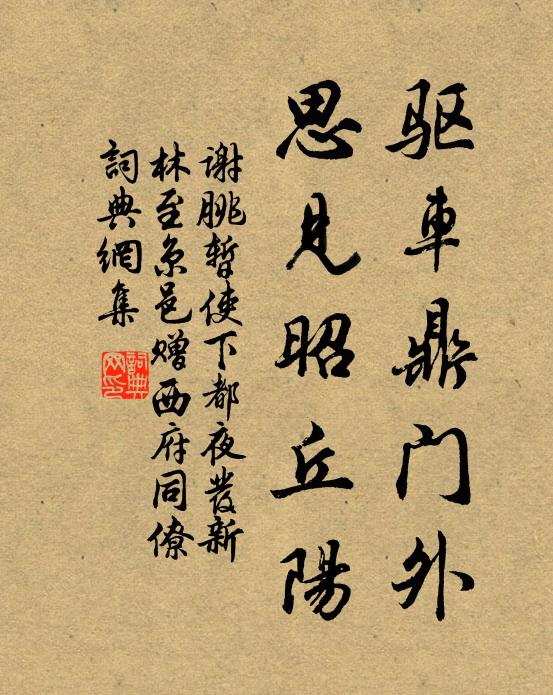 驱車鼎门外
思見昭丘陽
谢脁暫使下都夜發新
林至京邑赠西府同僚
詞典網集
詞典網印